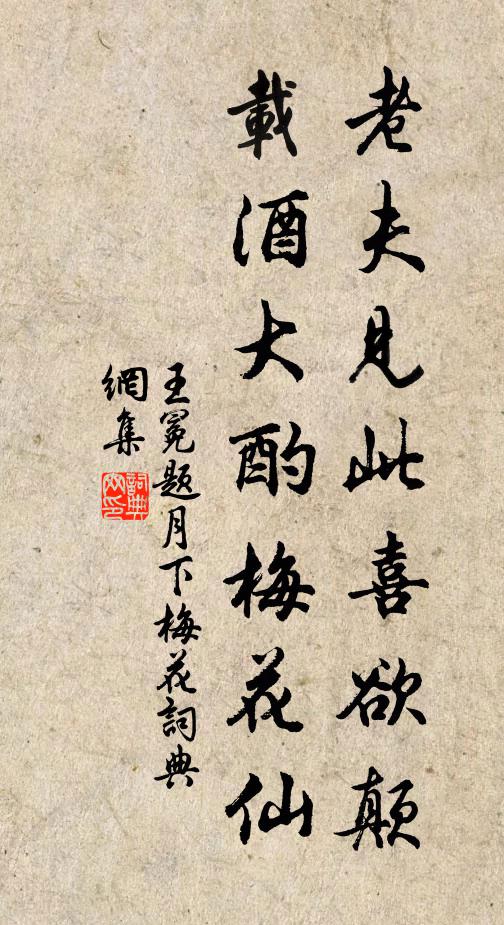 老夫見此喜欲顛
載酒大酌梅花仙
王冕題月下梅花詞典
網集
詞典
网印